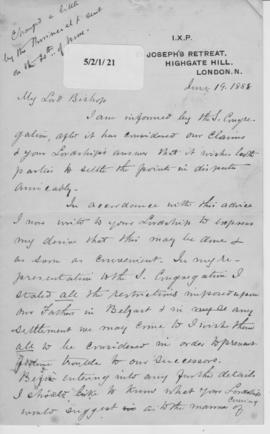 Changed a little
by the Provincial & sent
on the of June.
I.X.P.
5/2/1/21
JOSEPH'S RETREAT,
HIGHGATE HILL,
LONDON. N.
19. 1888
My Lord Bishop
I am informed by the S. Congre-
gation, after it has considered our Claims
& your Lordship's answer that it wishes both
parties to settle the points in dispute
amicably.
In accordance with this advice
I now write to your Lordship to express
my desire that this may be done &
as soon as convenient. In my re-
presentation to the S. Congregation I
stated all the restrictions imposed upon
our Fathers in Belfast & in any
settlement we may come to I wish them
all to be considered in order to prevent
future trouble to our successors.
Before entering into any further details
I should like to know what your Lordship
would suggest as to the manner of
coming